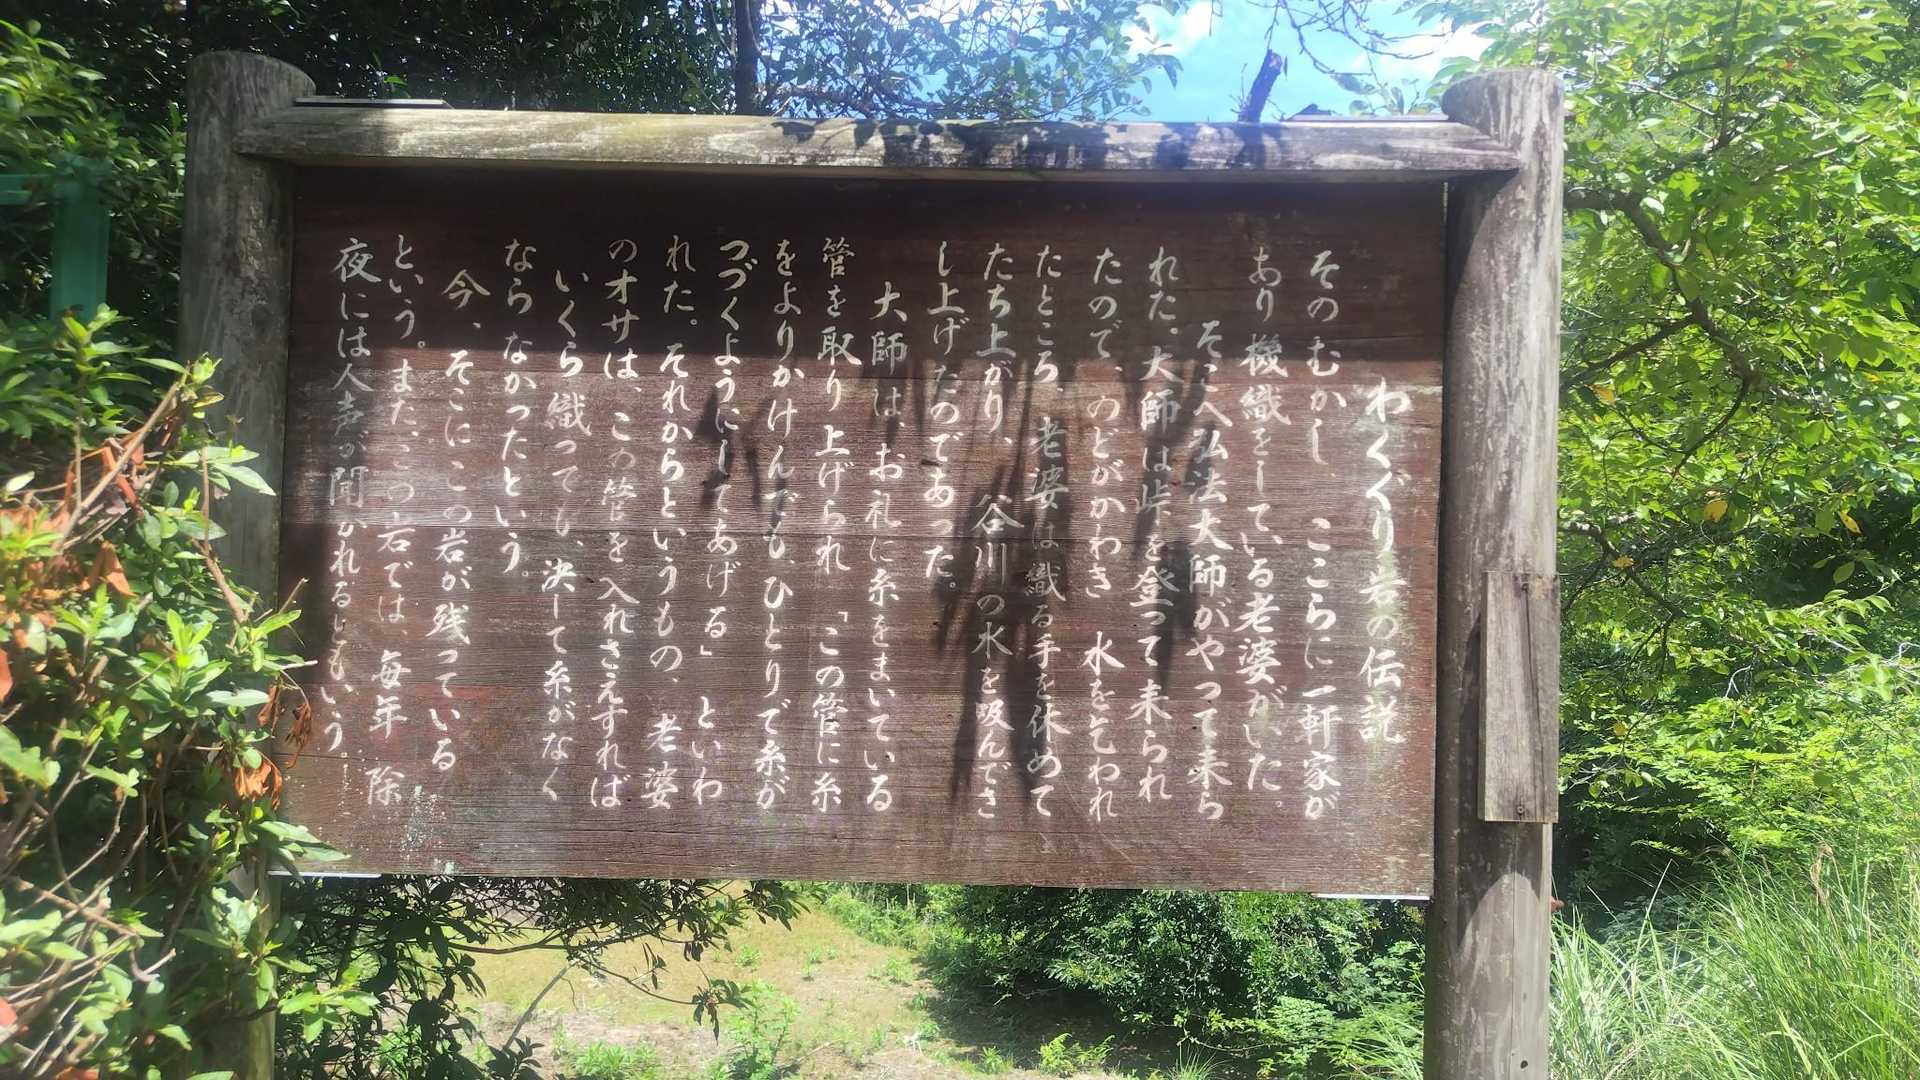 わくぐり岩の伝説
そのむかし、ここらに一軒家が
あり機織をしている老婆がいた。
そこへ弘法大師がやって来ら
れた。大師は峠を登って来られ
たので、のどがかわき 水を乞われ
たところ、老婆は織る手を休めて
たち上がり、谷川の水を汲んでさ
し上げたのであった。
大師は、お礼に糸をまいている
管を取り上げられ「この管に糸
をよりかけんでも、ひとりで糸が
つづくようにしてあげる」といわ
れた。それからというもの、老婆
のオサは、この管を入れさえすれば
いくら織っても、決して糸がなく
ならなかったという。
今、そこにこの岩が残っている
という。また、この岩では、毎年 除
夜には人声が聞かれるともいう。